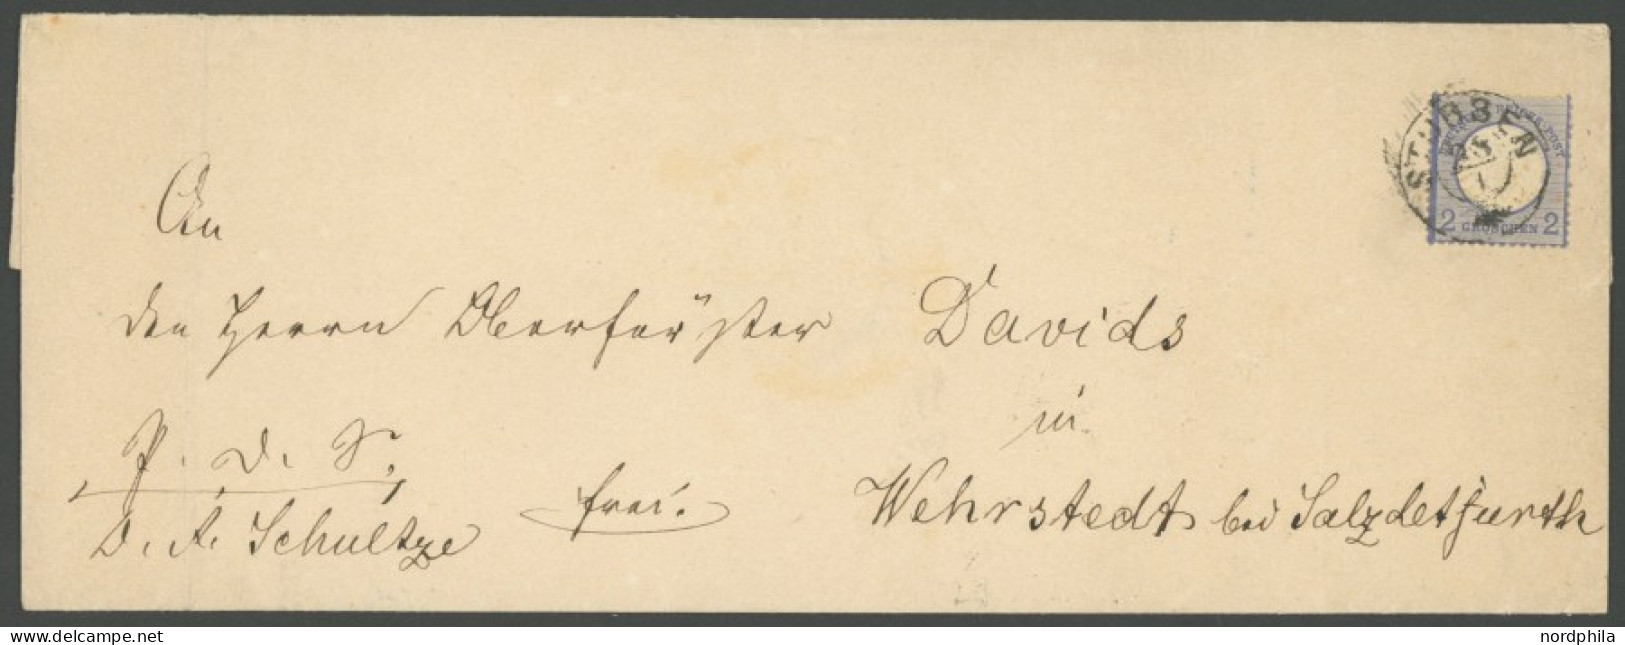 STÜBSEN
DEUTSCHE REICHS-POST
2 GROSCHEN 2
An
den Herrn Oberförster Davids
in
P. D. S. frei. Wehrstedt bei Salzdetfurth
D. A. Schultze
www.delcampe.net
nordphila